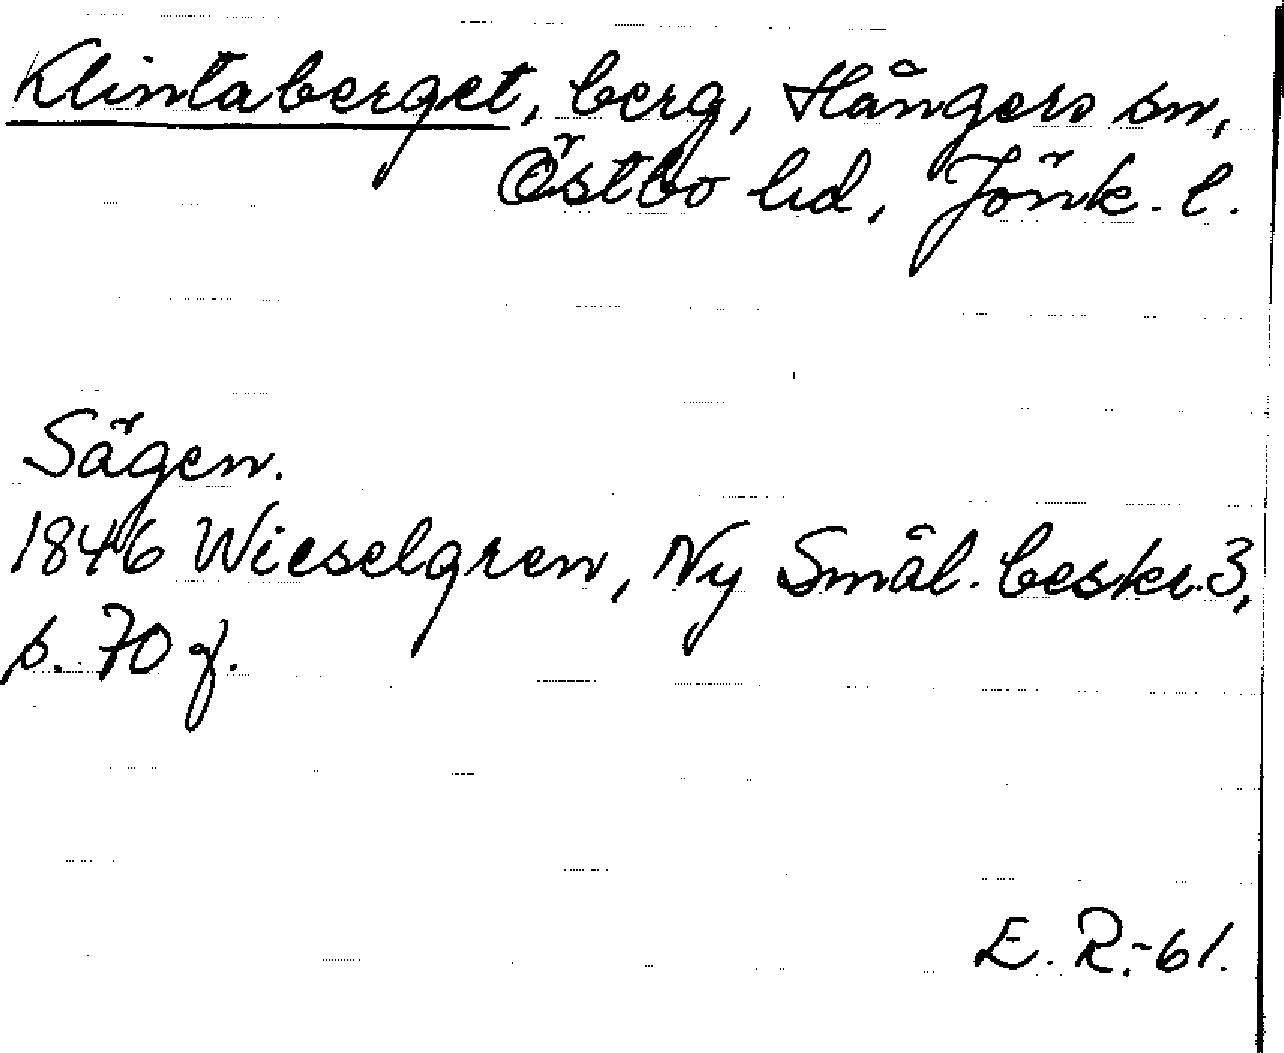 Klintaberget, berg, Hångers sn,
Östbo hd, Jönk. l.
Sägen.
1846 Wieselgren, Ny Smål. beskr. 3,
s. 70 f.
E. R. -61.